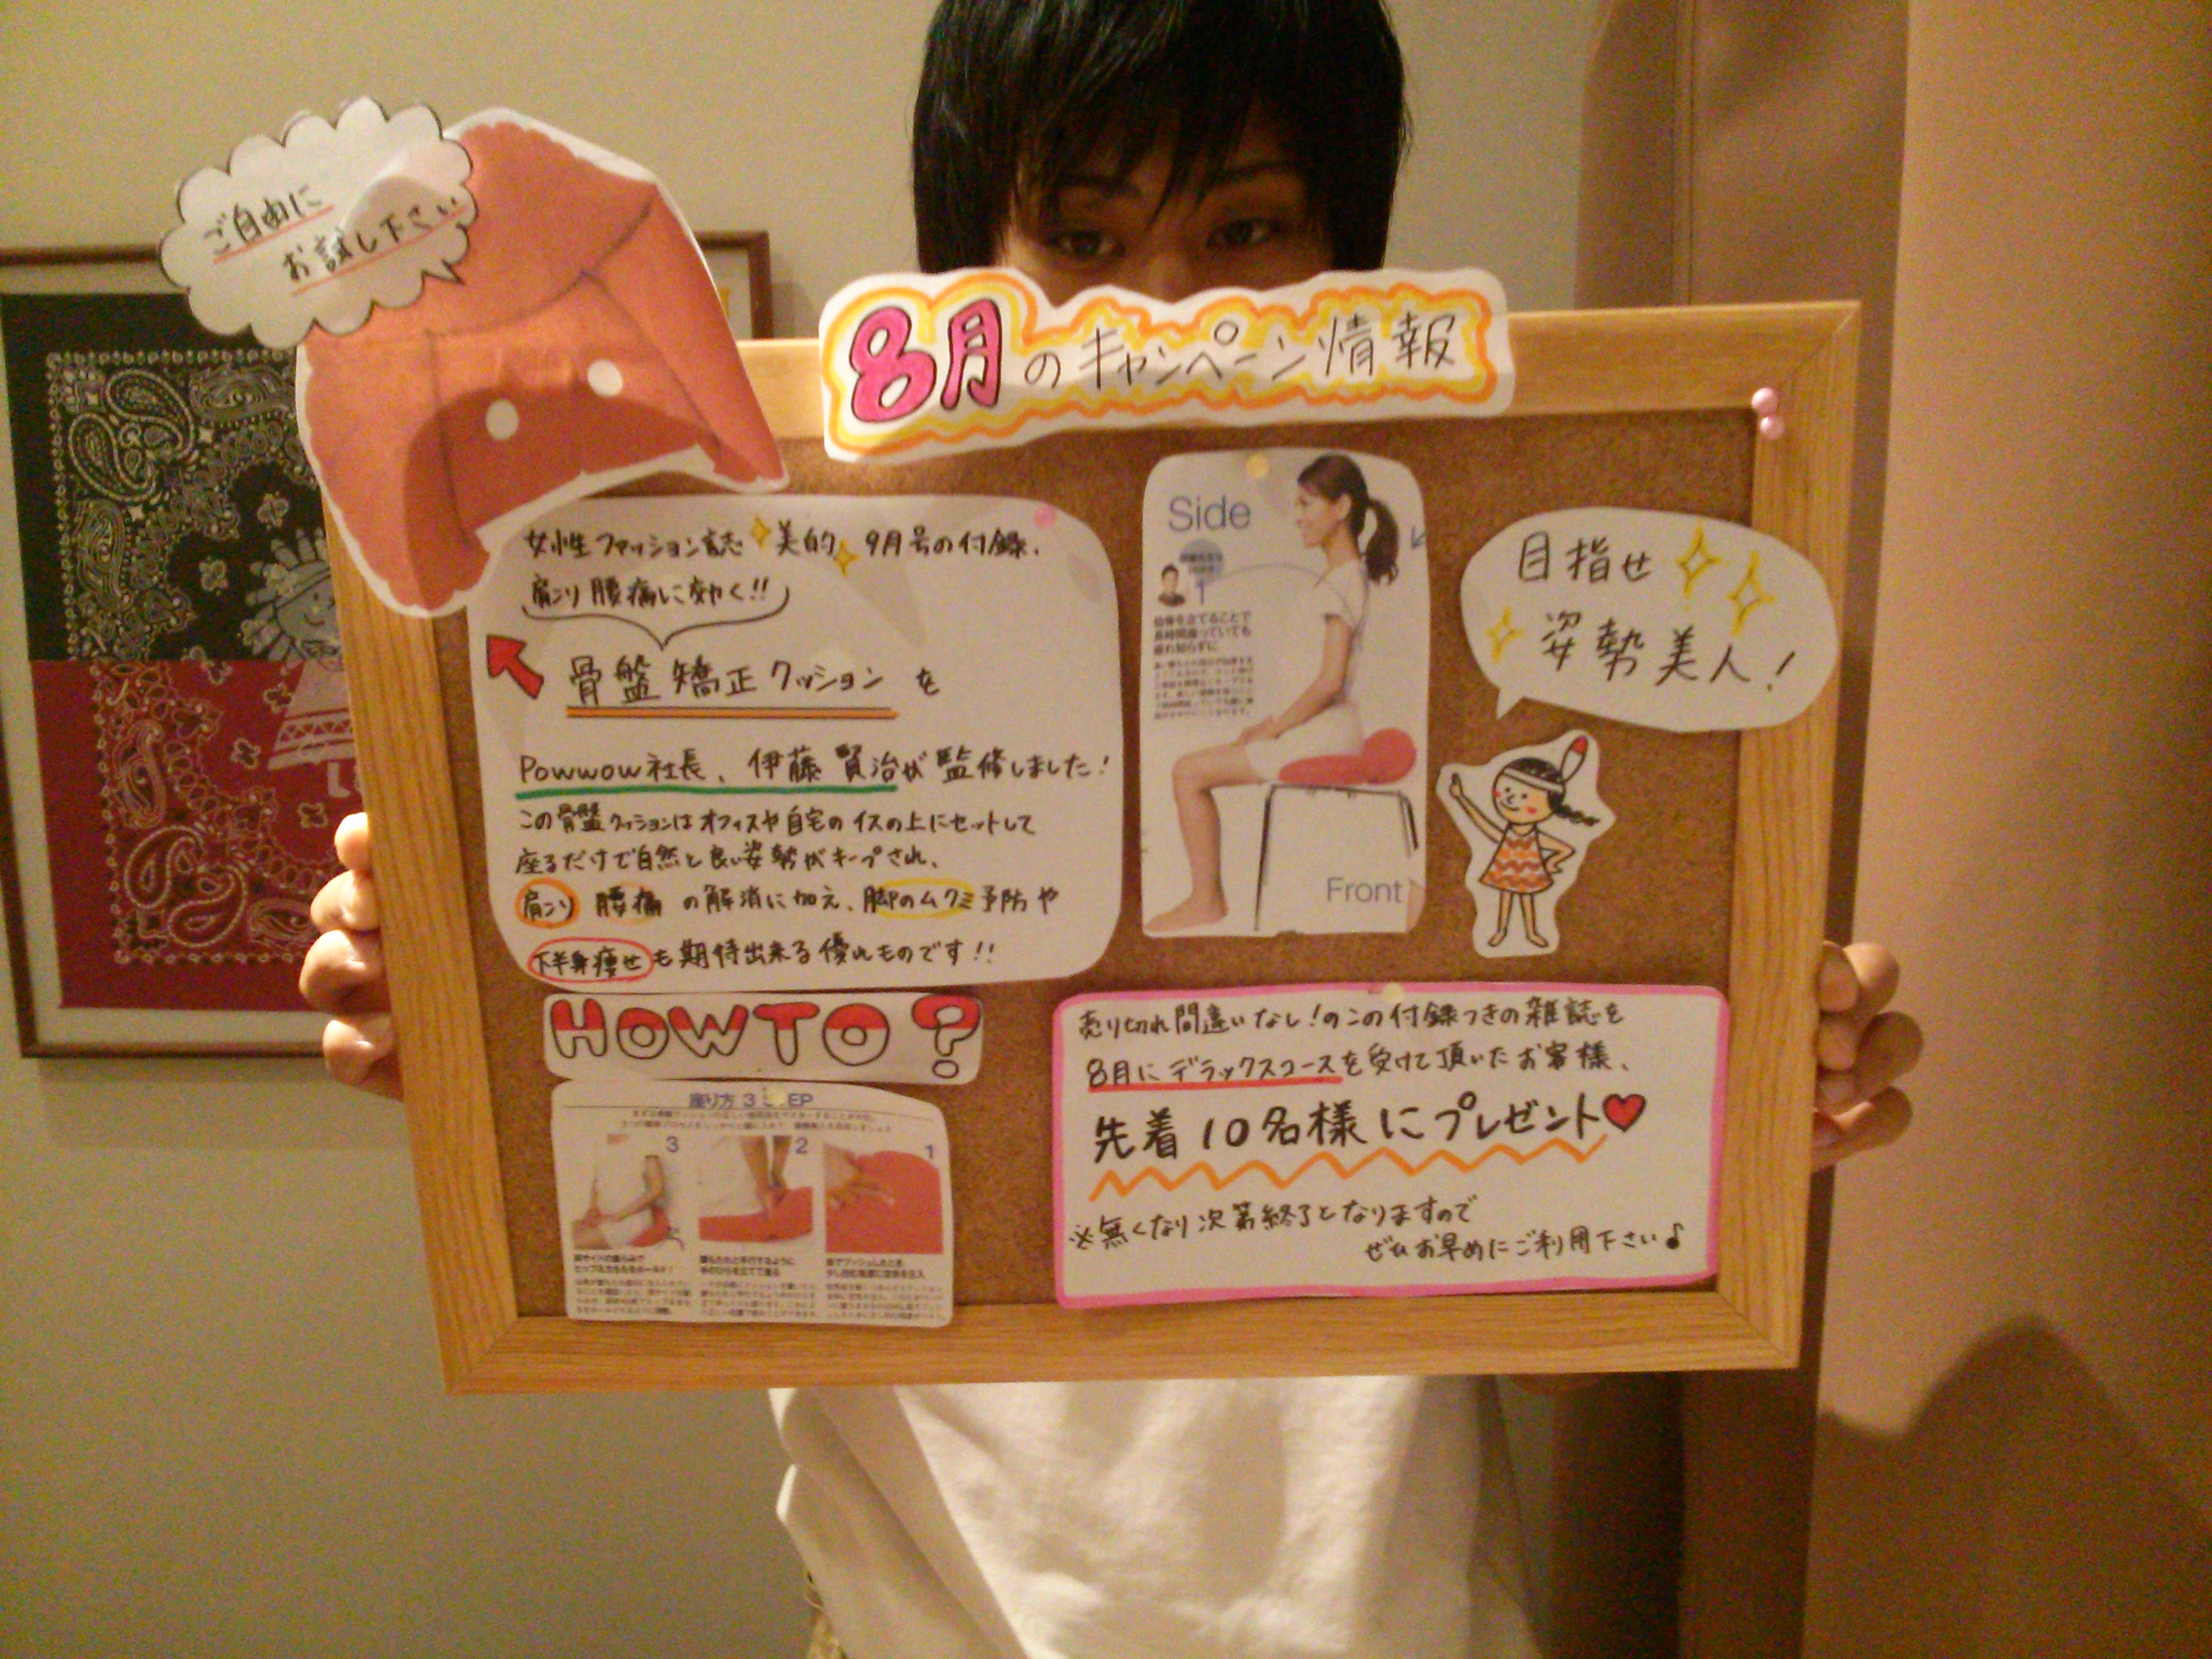 ご自由に
お試し下さい
8月のキャンペーン情報
女性ファッション誌 美的 9月号の付録、
肩コリ 腰痛に効く!!
骨盤矯正クッション を
Powwow社長、伊藤 賢治が監修しました!
この骨盤クッションはオフィスや自宅のイスの上にセットして
座るだけで自然と良い姿勢がキープされ、
肩コリ 腰痛 の解消に加え、脚のムクミ予防や
下半身痩せも期待出来る優れものです!!
Side
1
仙骨を立てることで
長時間座っていても
疲れ知らずに
Front
目指せ
姿勢美人!
HOW TO ?
座り方 3 EP
3
2
1
売り切れ間違いなし!のこの付録つきの雑誌を
8月にデラックスコースを受けて頂いたお客様、
先着10名様にプレゼント♥
※無くなり次第終了となりますので
ぜひお早めにご利用下さい♪